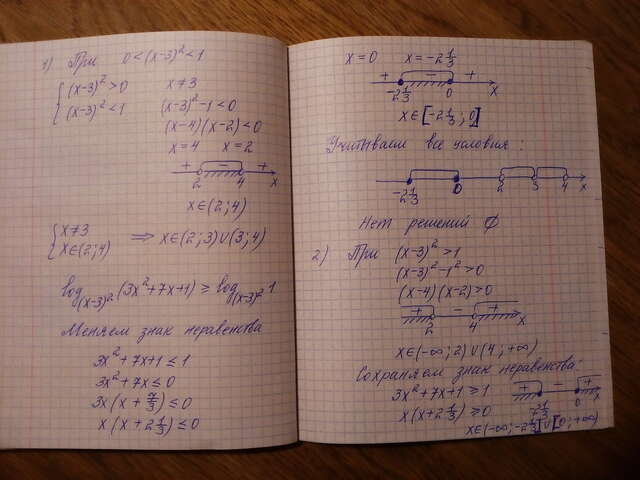 1) При 0<(x-3)²<1
{ (x-3)²>0 x≠3
{ (x-3)²<1 (x-3)²-1<0
(x-4)(x-2)<0
x=4 x=2
+ - +
2 4 x
x∈(2;4)
{ x≠3
{ x∈(2;4) ⟹ x∈(2;3)∪(3;4)
log_(x-3)² (3x²+7x+1) ≥ log_(x-3)² 1
Меняем знак неравенства
3x²+7x+1≤1
3x²+7x≤0
3x(x+7/3)≤0
x(x+2 1/3)≤0
x=0 x=-2 1/3
+ - +
-2 1/3 0 x
x∈[-2 1/3; 0]
Учитываем все условия:
-2 1/3 0 2 3 4 x
Нет решений ∅
2) При (x-3)²>1
(x-3)²-1²>0
(x-4)(x-2)>0
+ - +
2 4 x
x∈(-∞;2)∪(4;+∞)
Сохраняем знак неравенства:
3x²+7x+1≥1
x(x+2 1/3)≥0
+ - +
0 x
x∈(-∞;-2 1/3]∪[0;+∞)